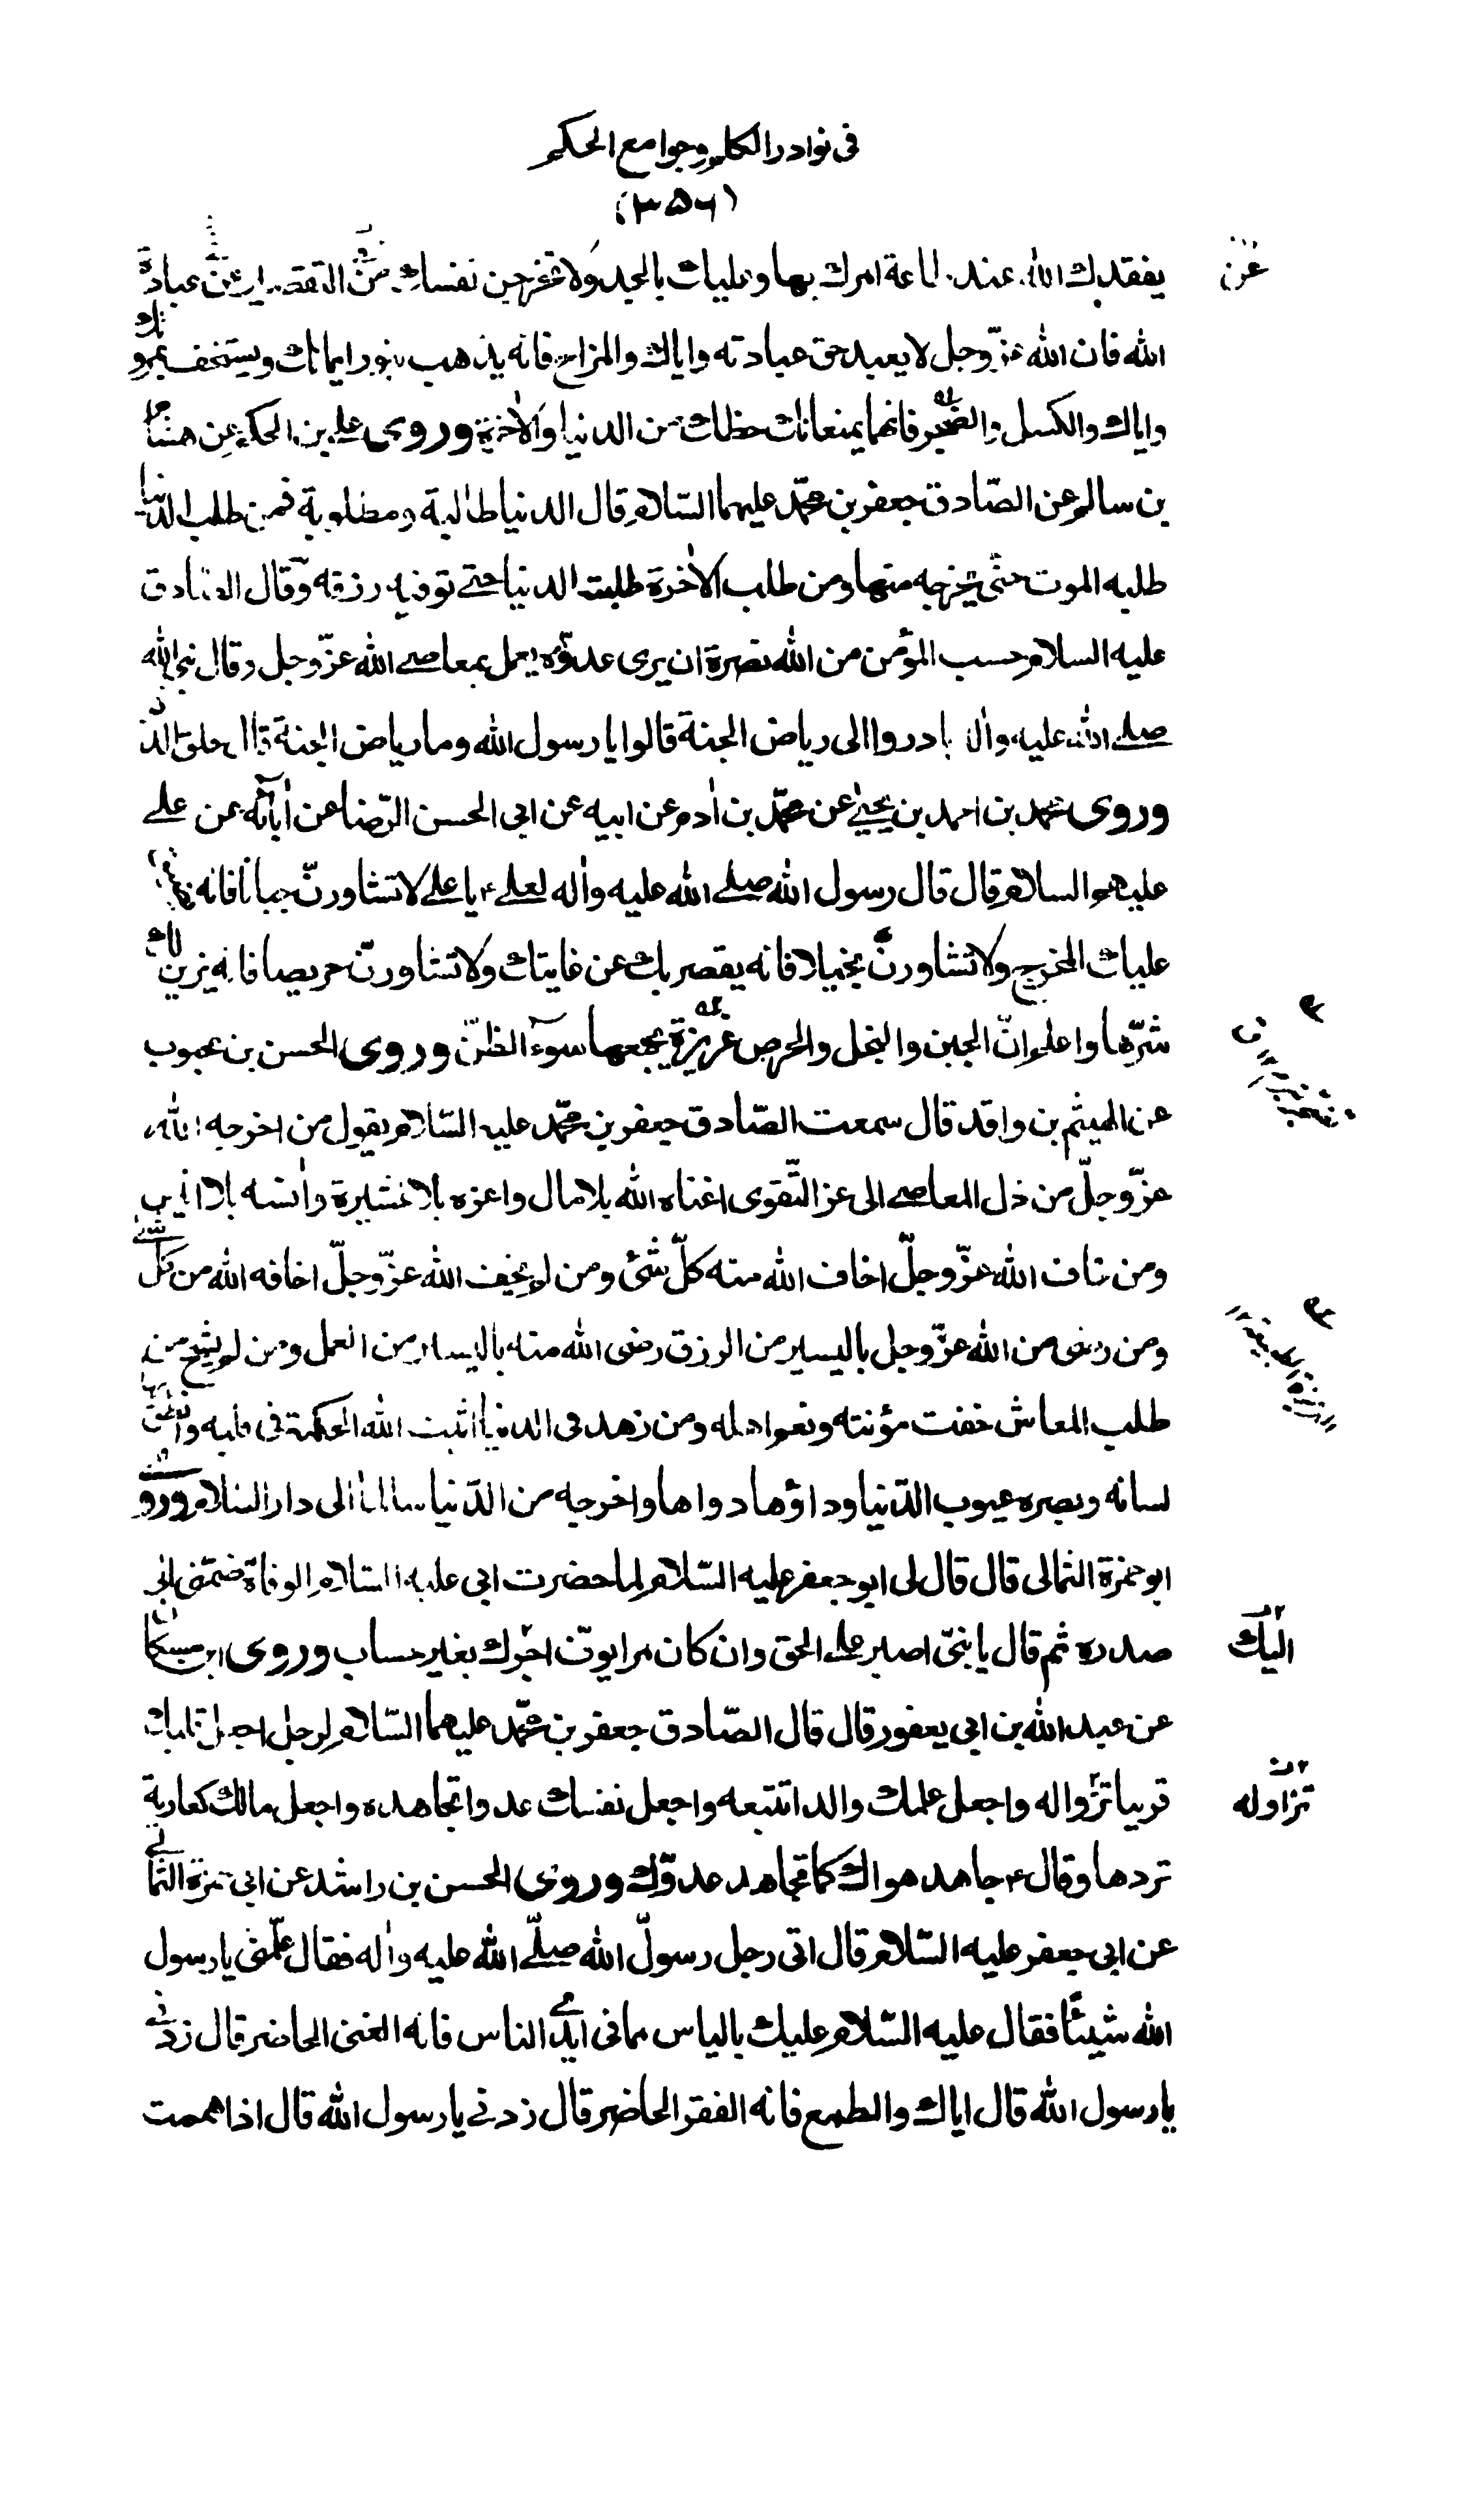 فى نوادر الكلم وجوامع الحكم
(٣٥٦)
يفقدك الله عند طاعة امرك بها وعليك بالجد ولا تخرجن نفسك من التقصير عن عبادة
عن
الله فان الله عزّ وجل لا يعبد حق عبادته واياك والمزاح فانه يذهب بنور ايمانك ويستخف بمروتك
واياك والكسل والضجر فانهما يمنعانك حظك من الدنيا والاٰخرة وروى على بن الحكم عن هشام
بن سالم عن الصّادق جعفر بن محمّد عليهما السّلام قال الدنيا طالبة ومطلوبة فمن طلب الدنيا
طلبه الموت حتى يخرجه منها ومن طلب الاٰخرة طلبته الدنيا حتى توفيه رزقه وقال الصّادق
عليه السلام حسب المؤمن من الله نصرة ان يرى عدوّه يعمل بمعاصى الله عزّ وجل وقال نبى الله
صلى الله عليه واٰله بادروا الى رياض الجنة قالوا يا رسول الله وما رياض الجنة قال حلق الذكر
وروى محمد بن احمد بن يحيىٰ عن محمّد بن اٰدم عن ابيه عن ابى الحسن الرّضا عن اٰبآئه عن على
عليهم السلام قال قال رسول الله صلى الله عليه واٰله لعلى ؑ يا على لا تشاورنّ جبانا فانه يضيق
عليك المخرج ولا تشاورنّ بخيلا فانه يقصر بك عن غايتك ولا تشاورنّ حريصا فانه يزين لك
شرّها واعلم انّ الجبن والبخل والحرص غريزة يجمعها سوء الظنّ وروى الحسن بن محبوب
عن الهيثم بن واقد قال سمعت الصّادق جعفر بن محمّد عليه السّلام يقول من اخرجه الله
عزّ وجلّ من ذل المعاصى الى عز التّقوى اغناه الله بلا مال واعزه بلا عشيرة واٰنسه بلا انيس
ومن خاف الله عزّ وجلّ اخاف الله منه كلّ شئ ومن لم يخف الله عزّ وجلّ اخافه الله من كلّ شئ
ومن رضى من الله عزّ وجل باليسير من الرزق رضى الله منه باليسير من العمل ومن لم يستح من
طلب المعاش خفت مؤنته ونعم اهله ومن زهد فى الدنيا اثبت الله الحكمة فى قلبه وانطق بها
لسانه وبصره عيوب الدّنيا وداؤها دواها واخرجه من الدّنيا سالما الى دار السّلام وروى
ابو حمزة الثمالى قال قال لى ابو جعفر عليه السّلام لما حضرت ابى عليه السّلام الوفاة ضمّنى الى
صدره ثم قال يا بنىّ اصبر على الحق وان كان مرا يوفّ اجرك بغير حساب وروى ابن مسكان
اليك
عن عبد الله بن ابى يعفور قال قال الصّادق جعفر بن محمّد عليهما السّلام لرجل اجعل قلبك
قريبا تزواله واجعل علمك والدا تتبعه واجعل نفسك عدوا تجاهده واجعل مالك كعارية
تزاوله
تردها وقال ؑ جاهد هواك كما تجاهد عدوّك وروى الحسن بن راشد عن ابى حمزة الثمالى
عن ابى جعفر عليه السّلام قال اتى رجل رسول الله صلّى الله عليه واٰله فقال علّمنى يا رسول
الله شيئًا فقال عليه السّلام عليك بالياس مما فى ايدى الناس فانه الغنى الحاضر قال زدنى
يا رسول الله قال اياك والطمع فانه الفقر الحاضر قال زدنى يا رسول الله قال اذا هممت